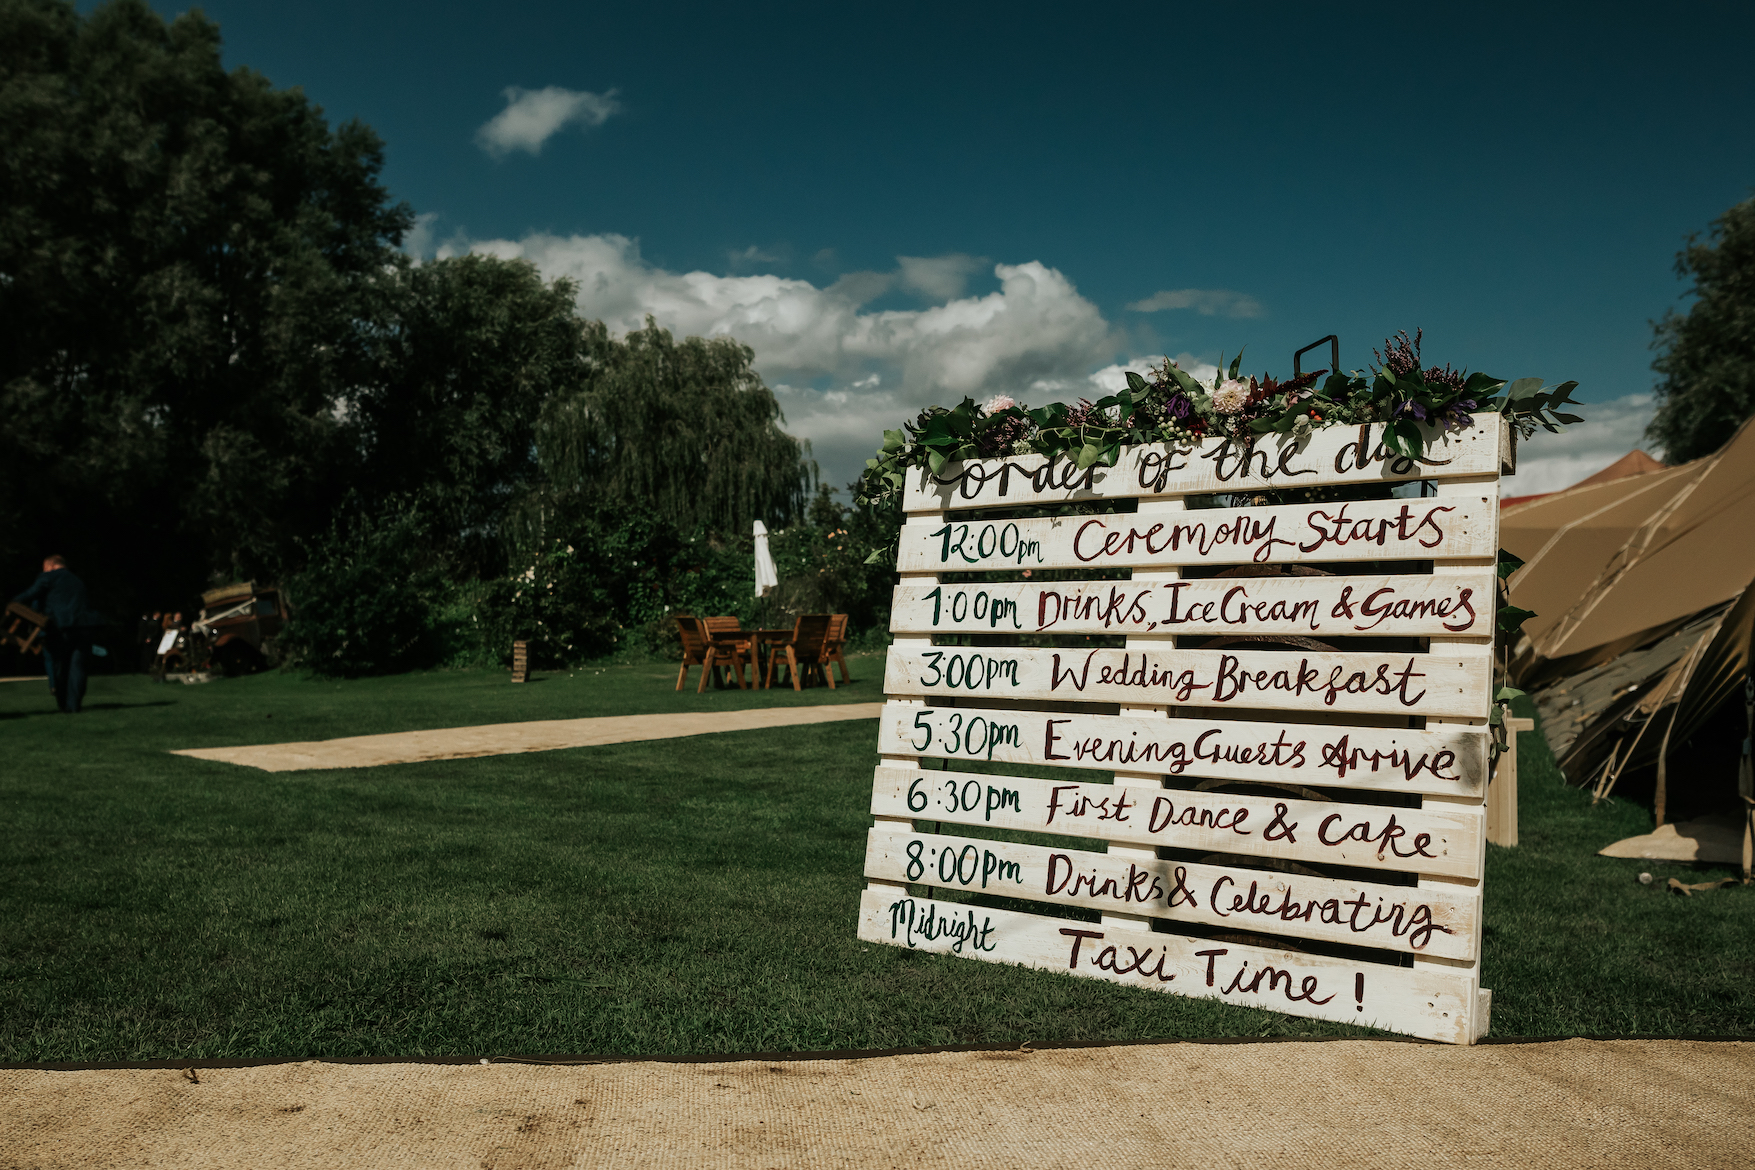 order of the day
12:00pm Ceremony Starts
1:00pm Drinks, Ice Cream & Games
3:00pm Wedding Breakfast
5:30pm Evening Guests Arrive
6:30pm First Dance & Cake
8:00pm Drinks & Celebrating
Midnight Taxi Time!